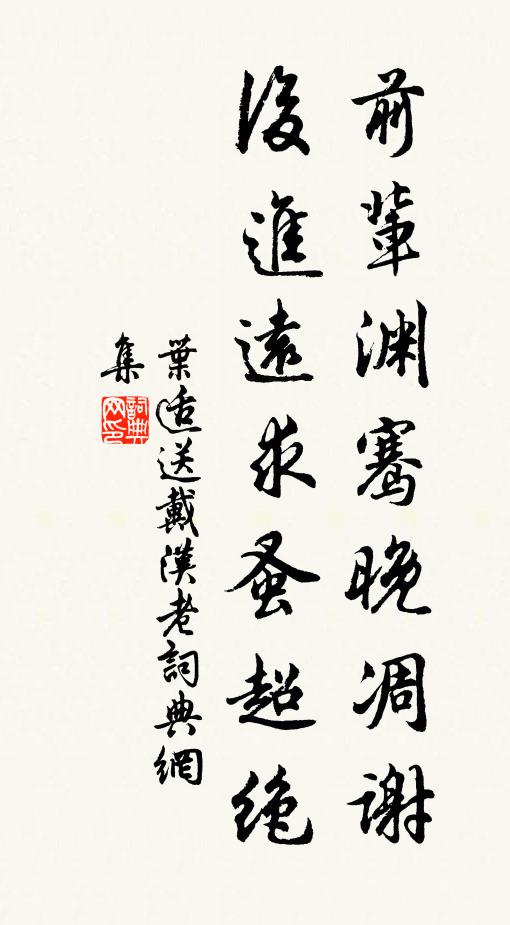 前輩渊骞晚凋谢
後進遠求蚤超絶
葉适送戴漢老詞典網
集
詞典网印